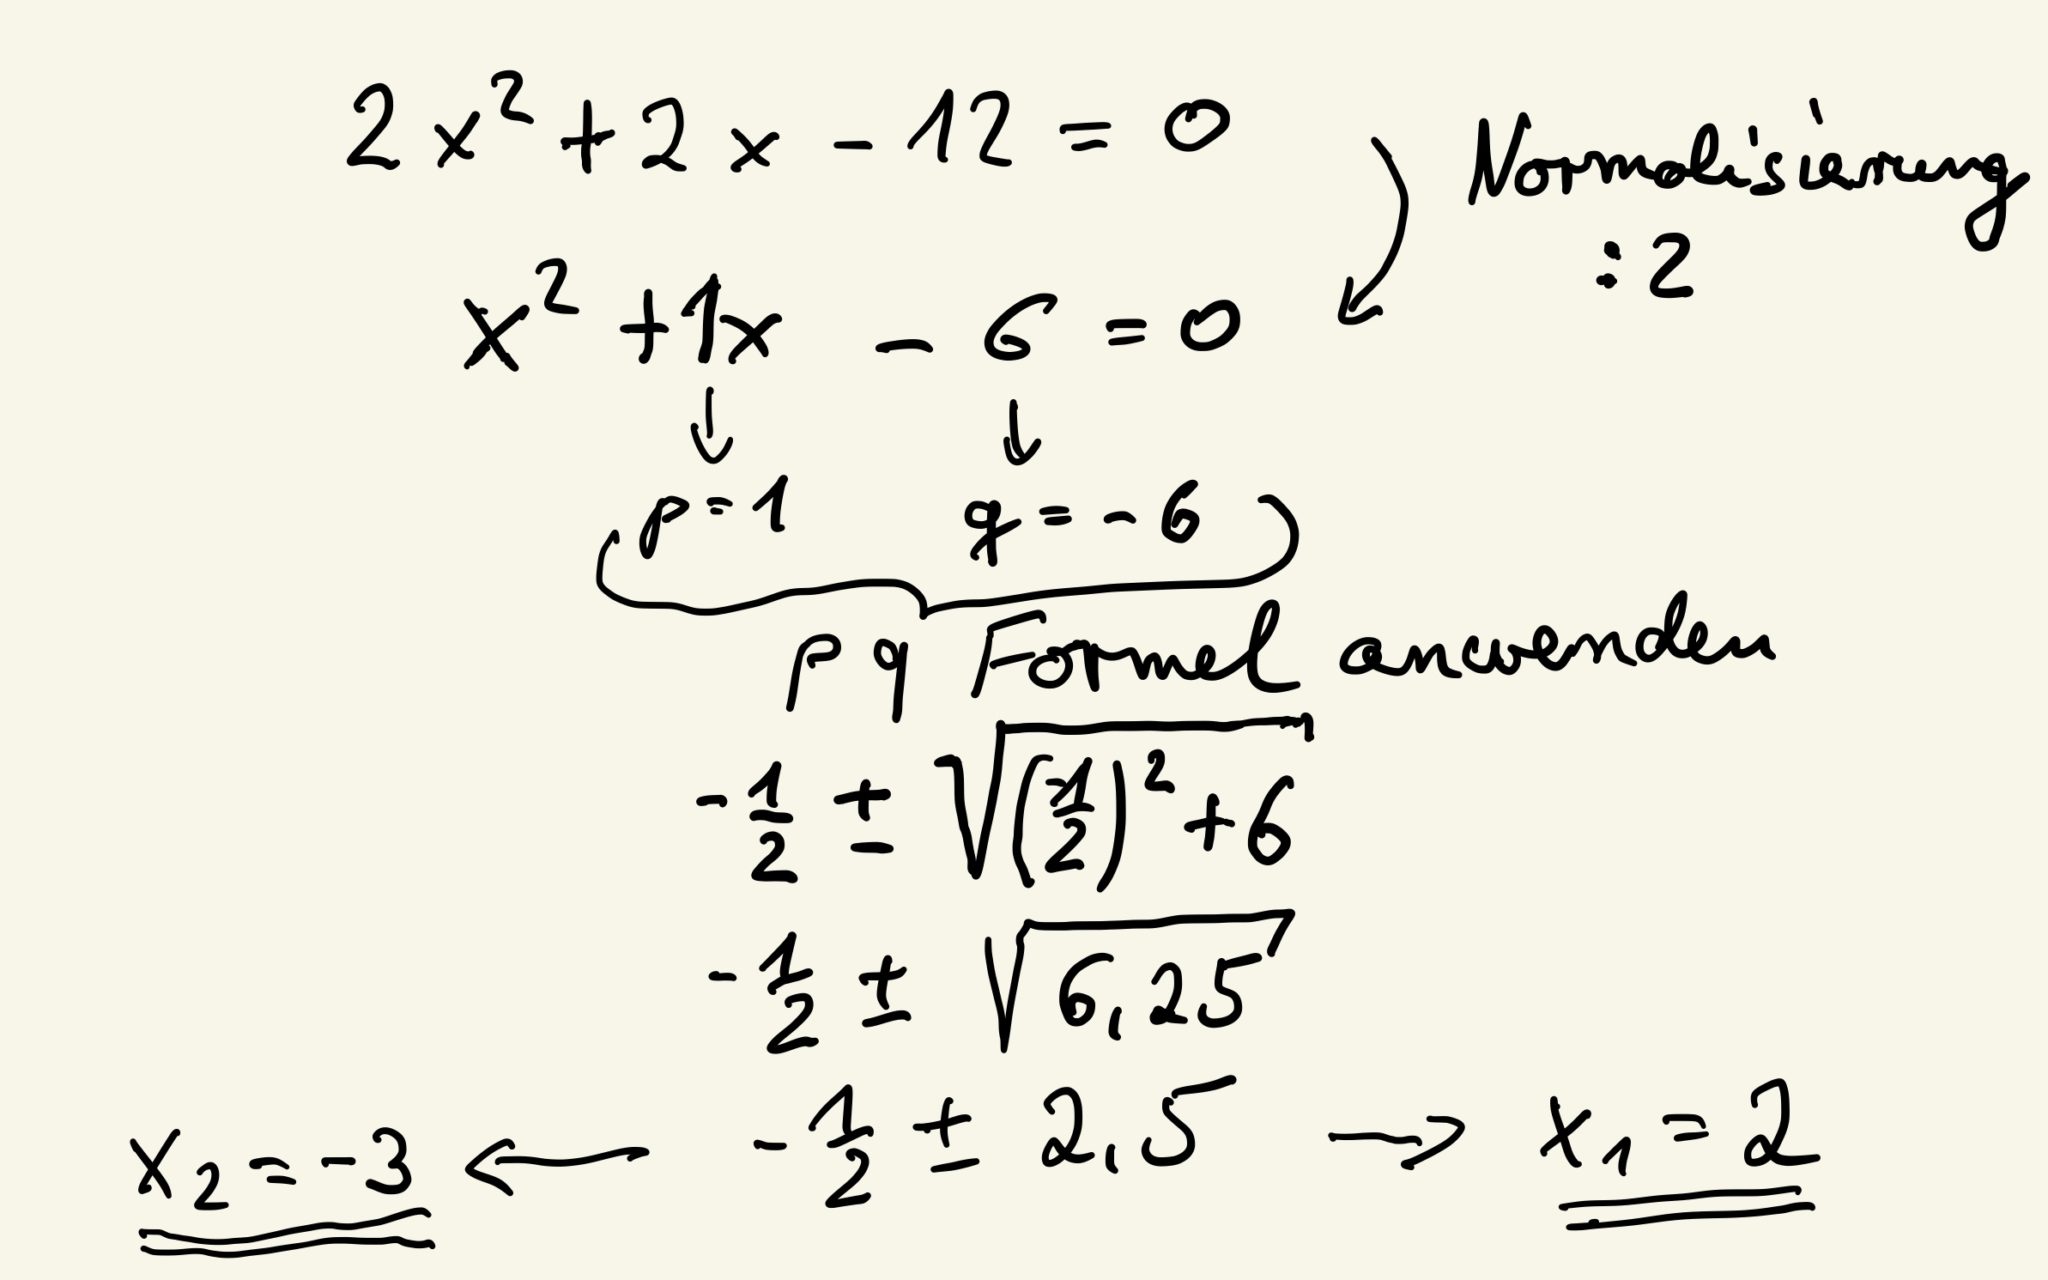 2x² + 2x - 12 = 0
Normalisierung
:2
x² + 1x - 6 = 0
p = 1 q = -6
pq Formel anwenden
-1/2 ± √((-1/2)² + 6)
-1/2 ± √6,25
x₂ = -3 ← -1/2 ± 2,5 → x₁ = 2